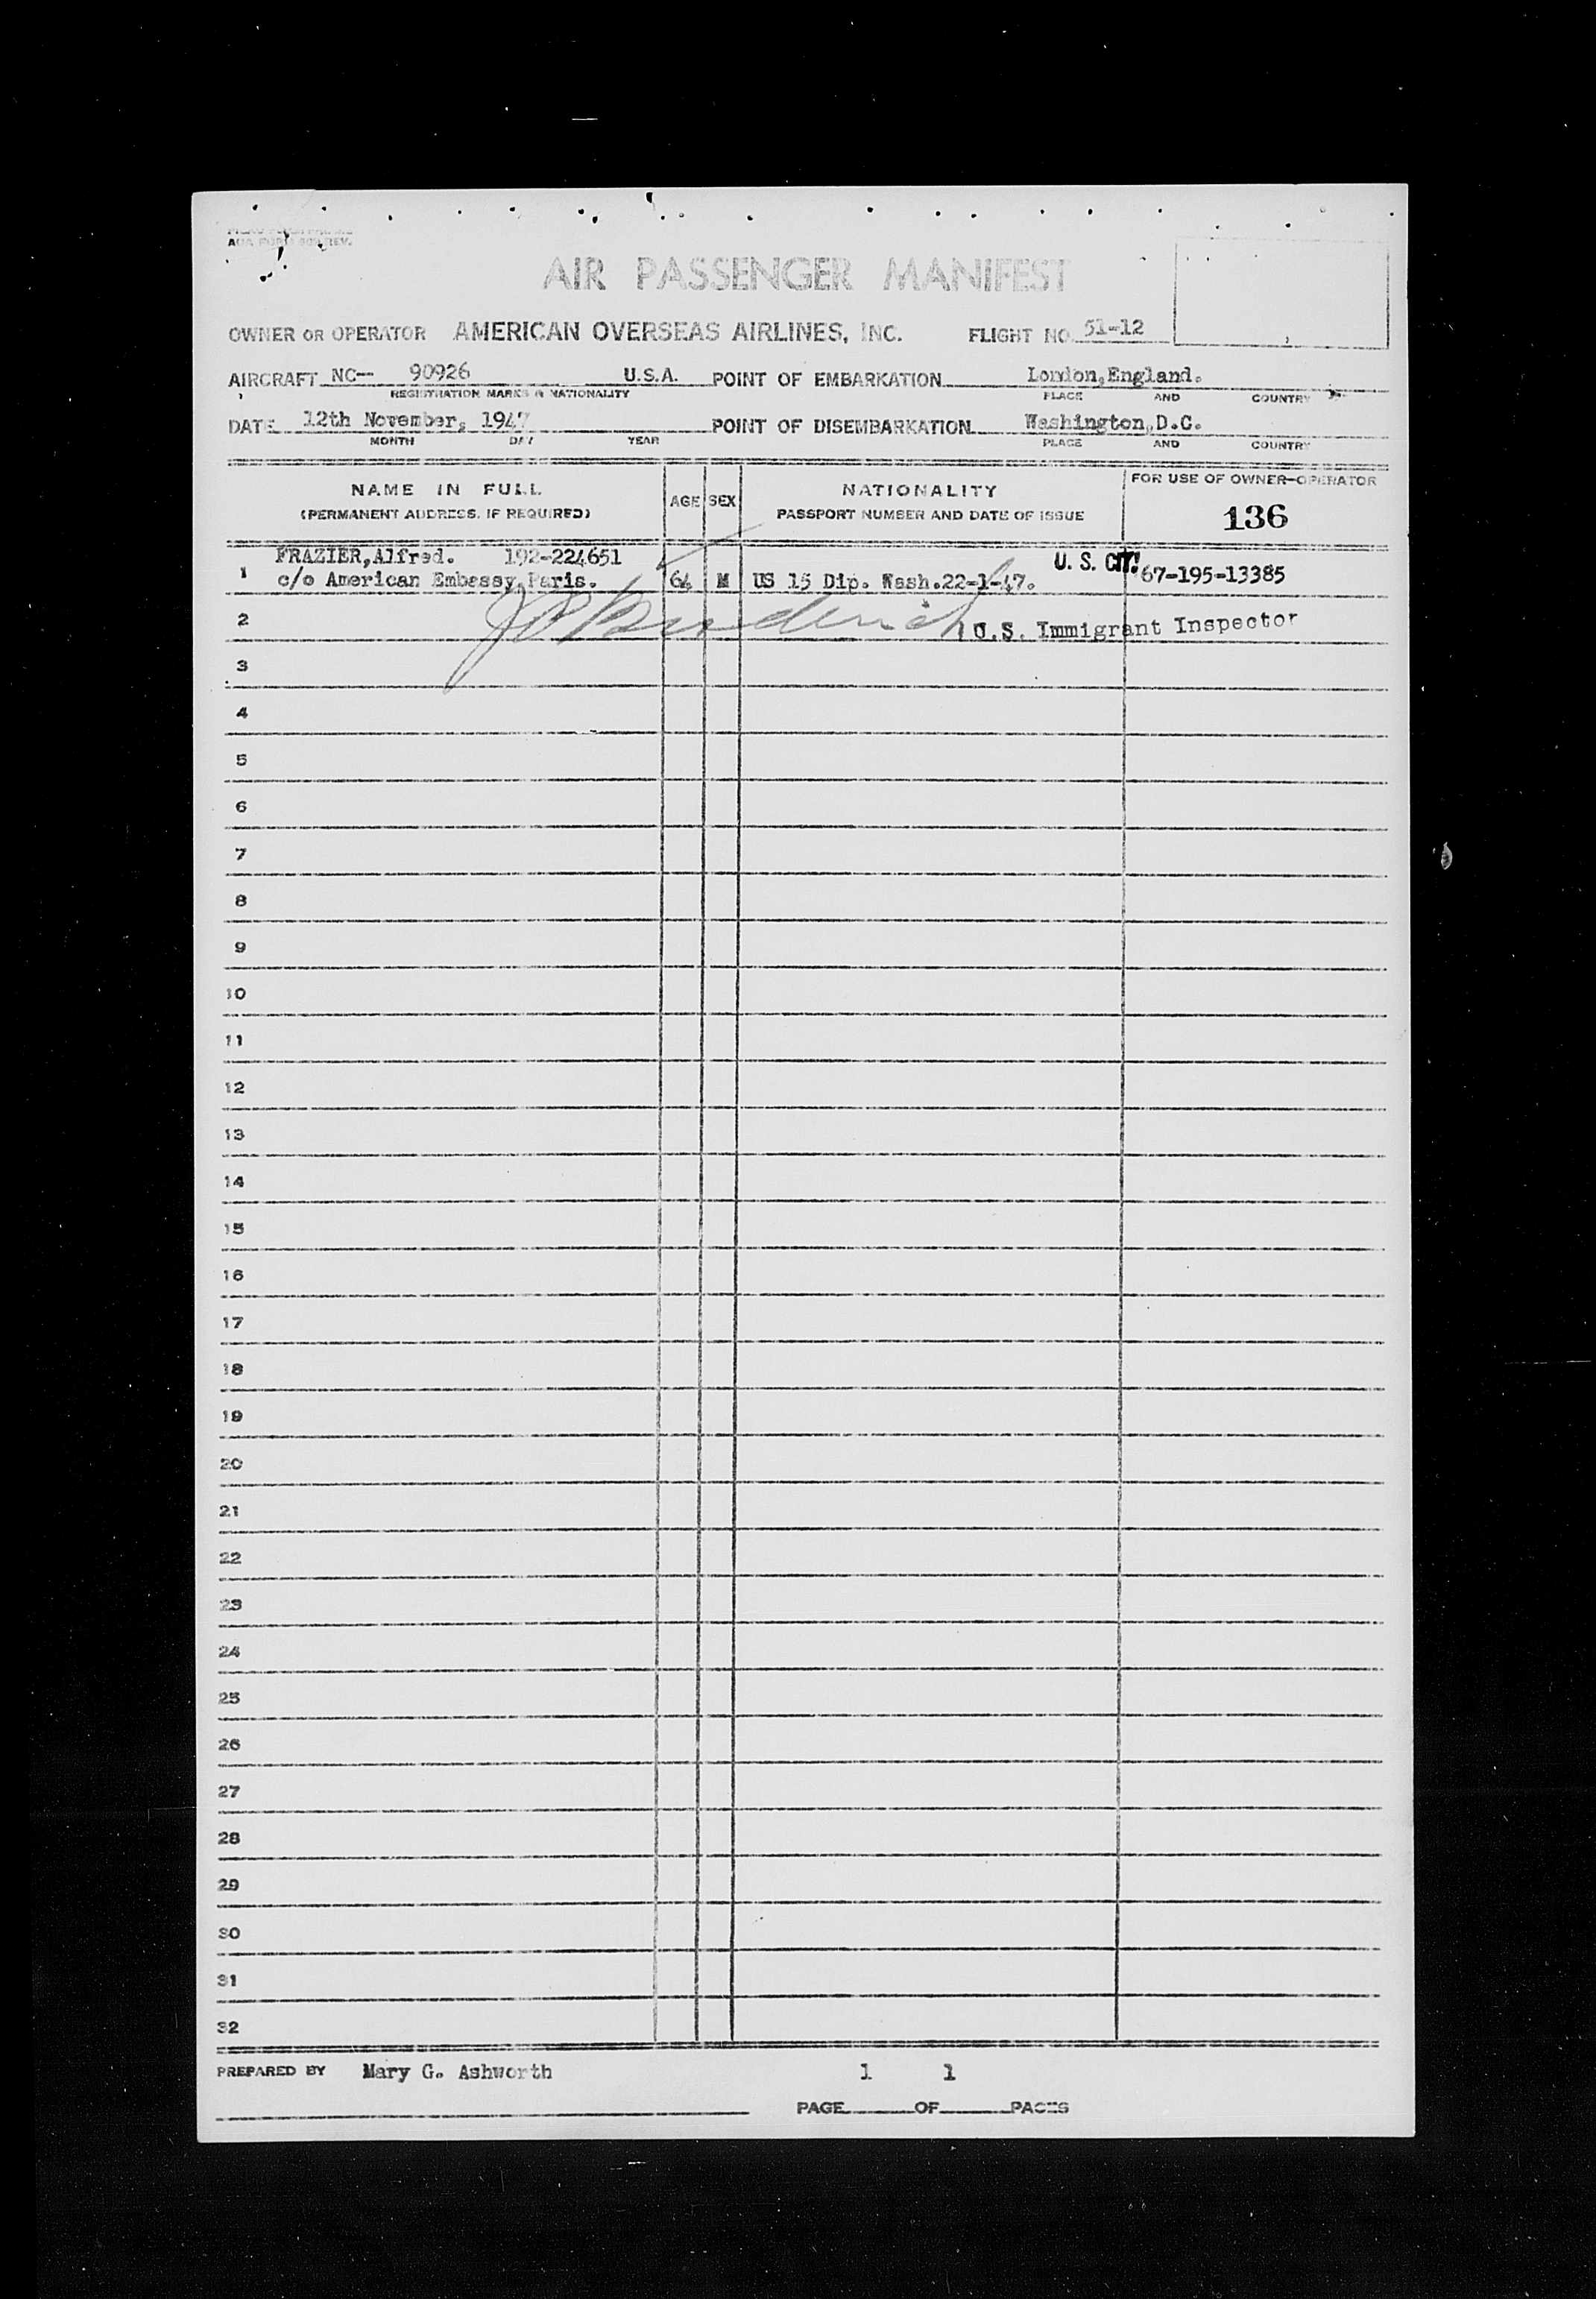 AIR PASSENGER MANIFEST
OWNER OR OPERATOR AMERICAN OVERSEAS AIRLINES, INC. FLIGHT NO. 51-12
AIRCRAFT NC- 90926 U.S.A. POINT OF EMBARKATION London,England.
REGISTRATION MARKS & NATIONALITY PLACE AND COUNTRY
DATE 12th November, 1947 POINT OF DISEMBARKATION Washington,D.C.
MONTH DAY YEAR PLACE AND COUNTRY
NAME IN FULL AGE SEX NATIONALITY FOR USE OF OWNER-OPERATOR
(PERMANENT ADDRESS, IF REQUIRED) PASSPORT NUMBER AND DATE OF ISSUE 136
FRAZIER,Alfred. 192-224651 U. S. CIT.
1 c/o American Embassy,Paris. 64 M US 15 Dip. Wash.22-1-47. 67-195-13385
2 U.S. Immigrant Inspector
3
4
5
6
7
8
9
10
11
12
13
14
15
16
17
18
19
20
21
22
23
24
25
26
27
28
29
30
31
32
PREPARED BY Mary G. Ashworth 1 1
PAGE OF PAGES